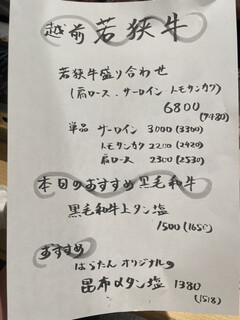 越前若狭牛
若狭牛盛り合わせ
(肩ロース、サーロイン、トモサンカク)
6800
(7480)
単品 サーロイン 3000(3300)
トモサンカク 2200(2420)
肩ロース 2300(2530)
本日のおすすめ黒毛和牛
黒毛和牛上タン塩
1500(1650)
おすすめ
はらたん オリジナルの
昆布〆タン塩 1380
(1518)